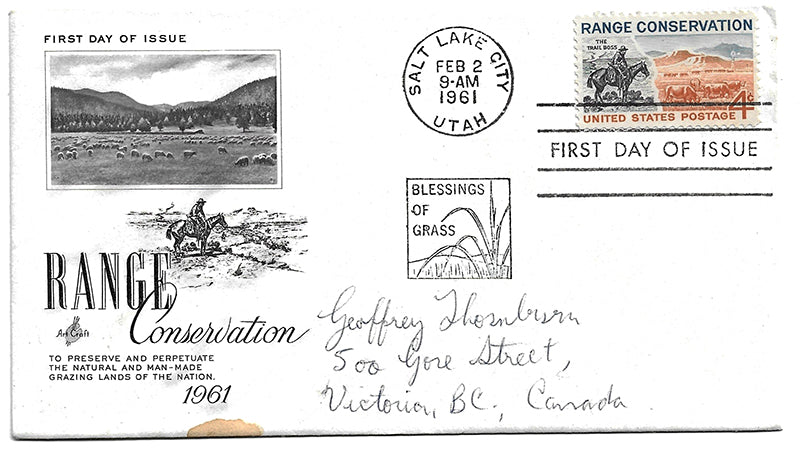 FIRST DAY OF ISSUE
RANGE
Conservation
Art Craft
TO PRESERVE AND PERPETUATE
THE NATURAL AND MAN-MADE
GRAZING LANDS OF THE NATION.
1961
SALT LAKE CITY
FEB 2
9-AM
1961
UTAH
RANGE CONSERVATION
THE
TRAIL BOSS
4¢
UNITED STATES POSTAGE
FIRST DAY OF ISSUE
BLESSINGS
OF
GRASS
Geoffrey Thornburn
500 Gore Street,
Victoria, BC, Canada